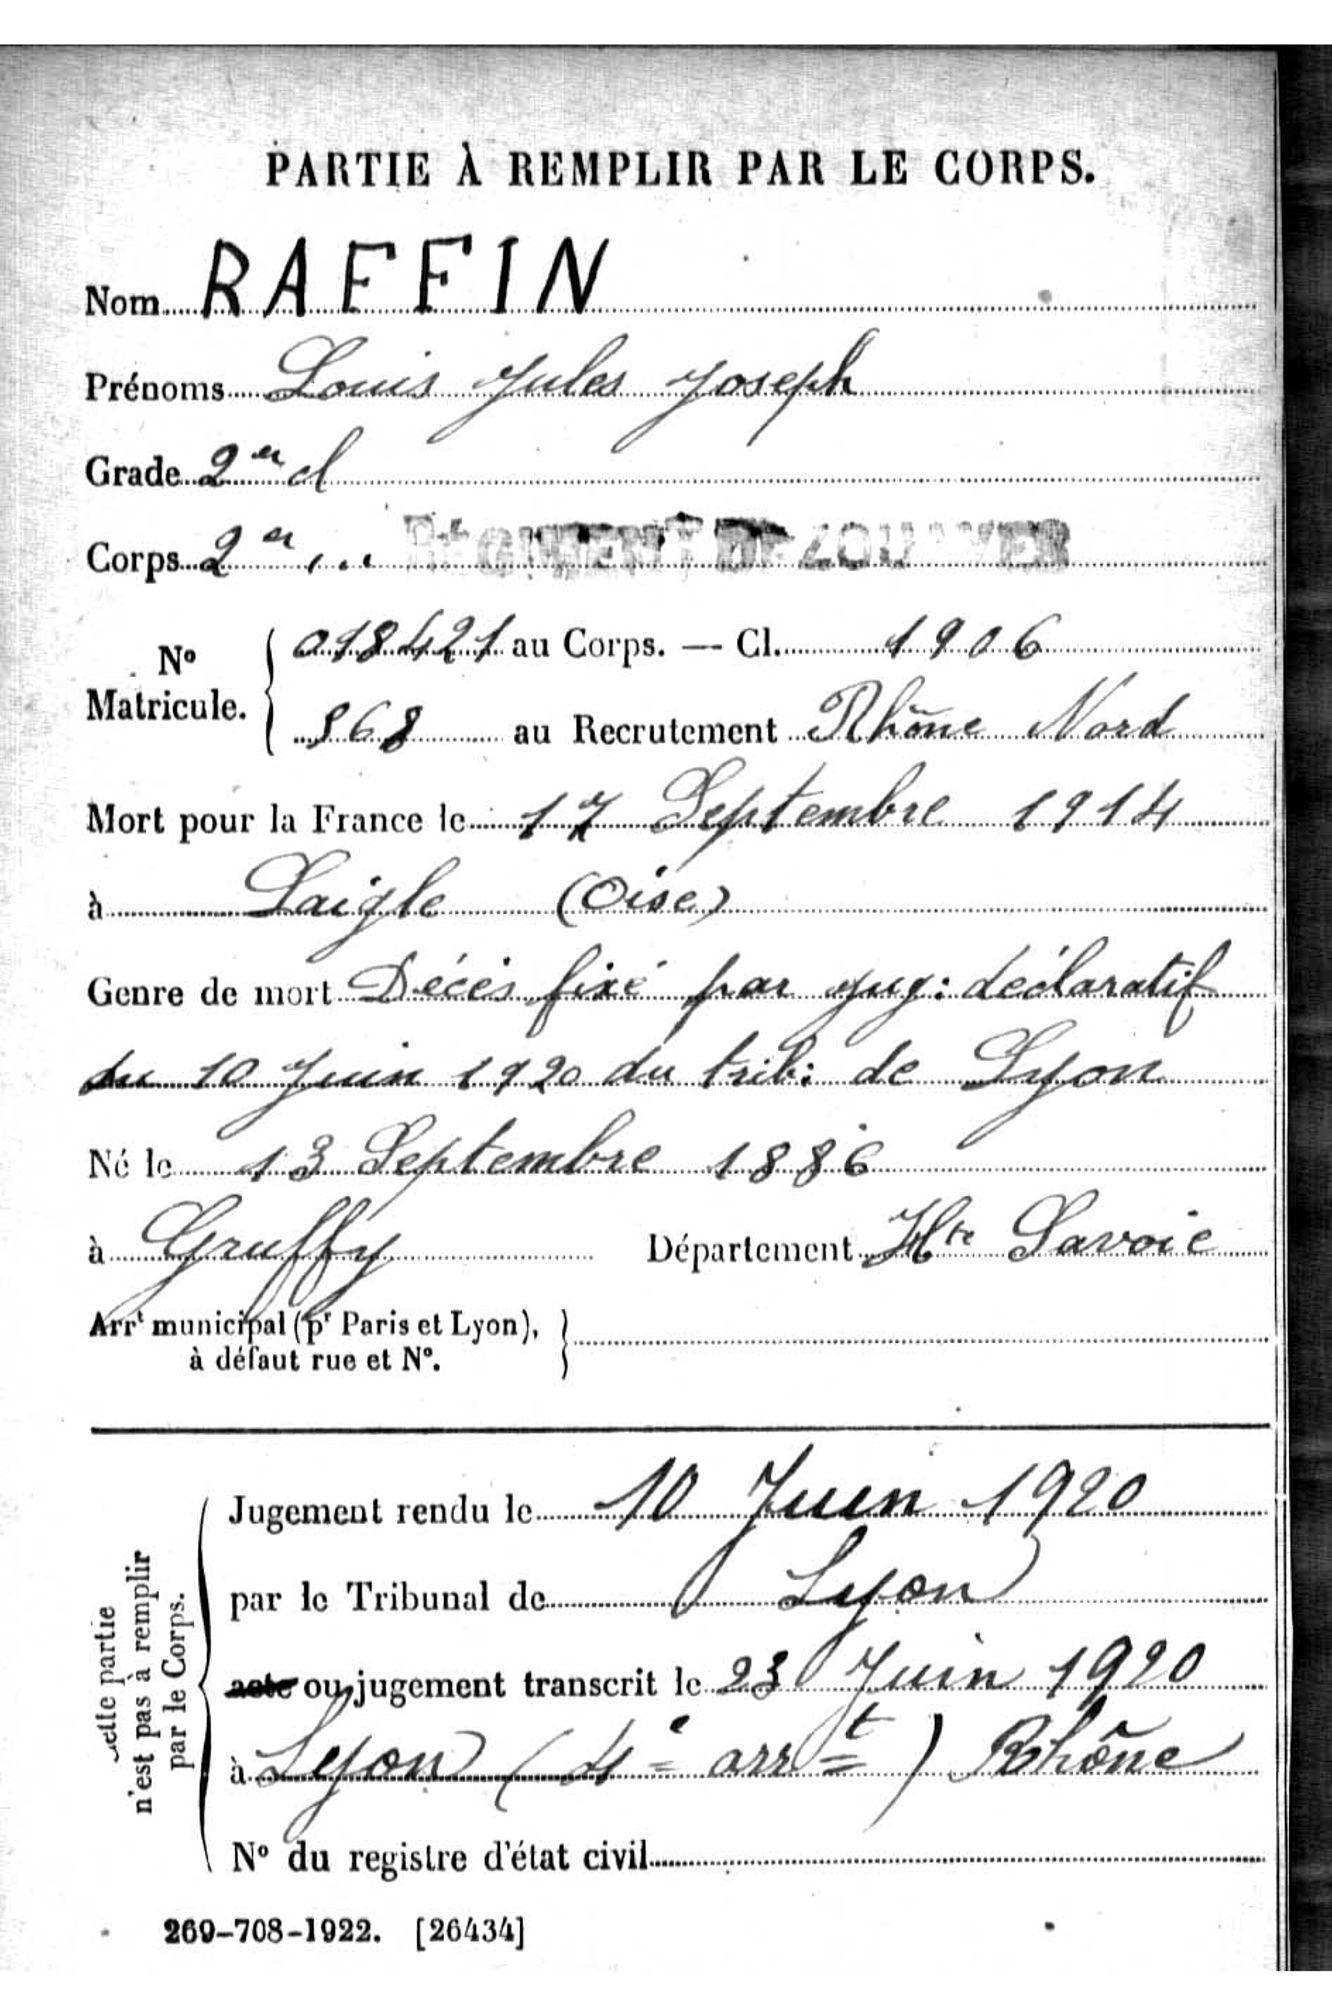 PARTIE À REMPLIR PAR LE CORPS.
Nom RAFFIN
Prénoms Louis Jules Joseph
Grade 2er cl
Corps 2er ... RÉGIMENT DE ZOUAVES
No Matricule. 018421 au Corps. — Cl. 1906
868 au Recrutement Rhône Nord
Mort pour la France le 17 Septembre 1914
à Laigle (Oise)
Genre de mort Décès fixé par jug: déclaratif
du 10 Juin 1920 du trib: de Lyon
Né le 13 Septembre 1886
à Gruffy Département Hte Savoie
Arrt municipal (pr Paris et Lyon),
à défaut rue et No.
Cette partie
n'est pas à remplir
par le Corps.
Jugement rendu le 10 Juin 1920
par le Tribunal de Lyon
acte ou jugement transcrit le 23 Juin 1920
à Lyon (4e arrt) Rhône
No du registre d'état civil
269-708-1922. [26434]